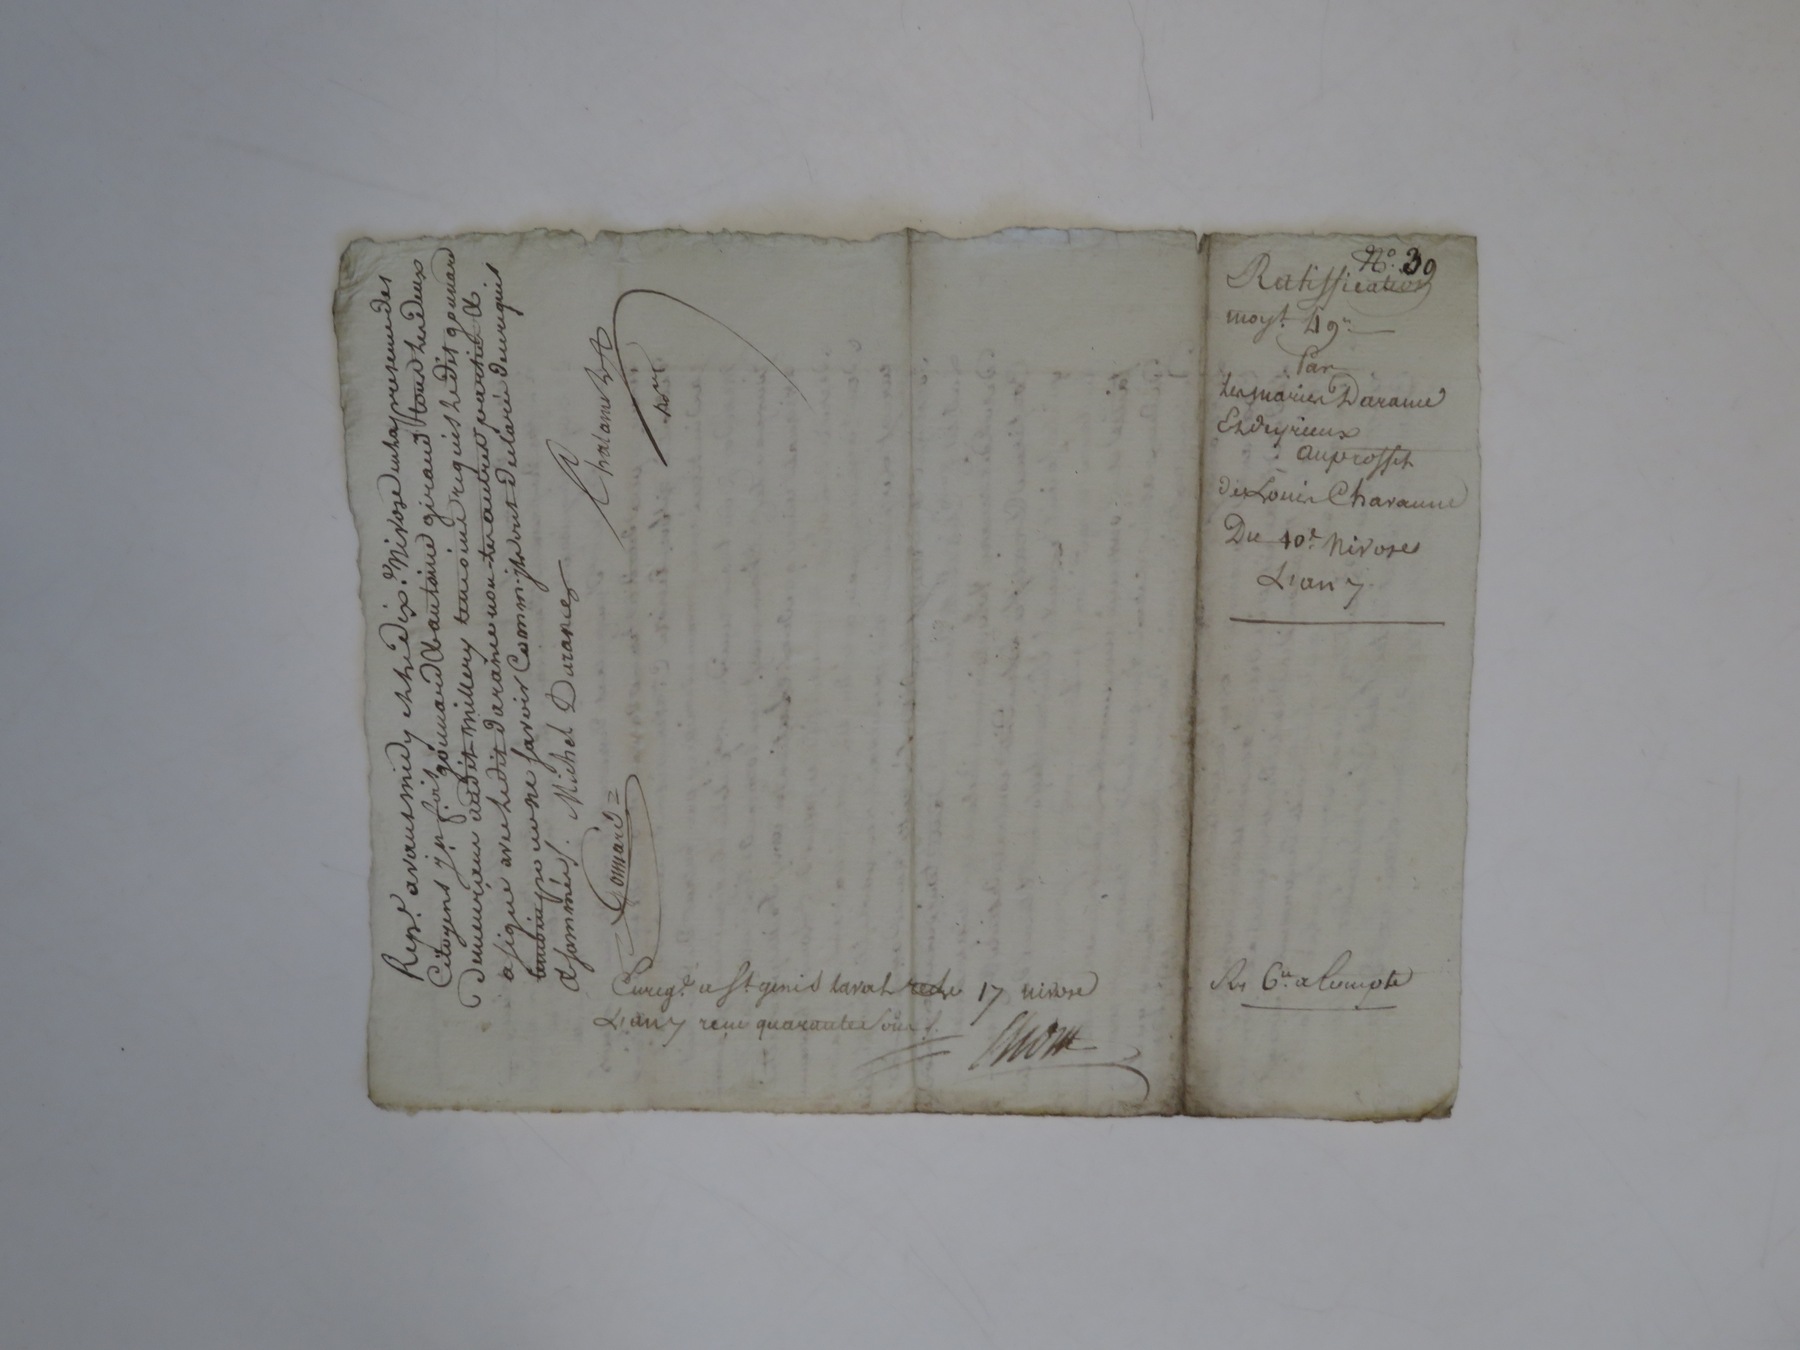 Rep.t avant midy et le dix Nivose en la presence des
Citoyens j.n f.ois goumard & antoine giraud tous les deux
demeurians audit millery temoins requis ledit goumard
a signé avec ledit daranne non les autres parties &
temoins pour ne savoir Comm. ils ont declaré de
& sommés. Michel Daranes
Goumard
Chalamel
Enreg.é a St genis laval le 17 nivose
L'an 7 reçu quarante sous
N.o 39
Ratiffication
moy.t 49.
Par
les mariés Daranne
Et deyrieux
au proffit
de Louis Charanne
Du 10.e Nivose
L'an 7
R. 6.# a Compte